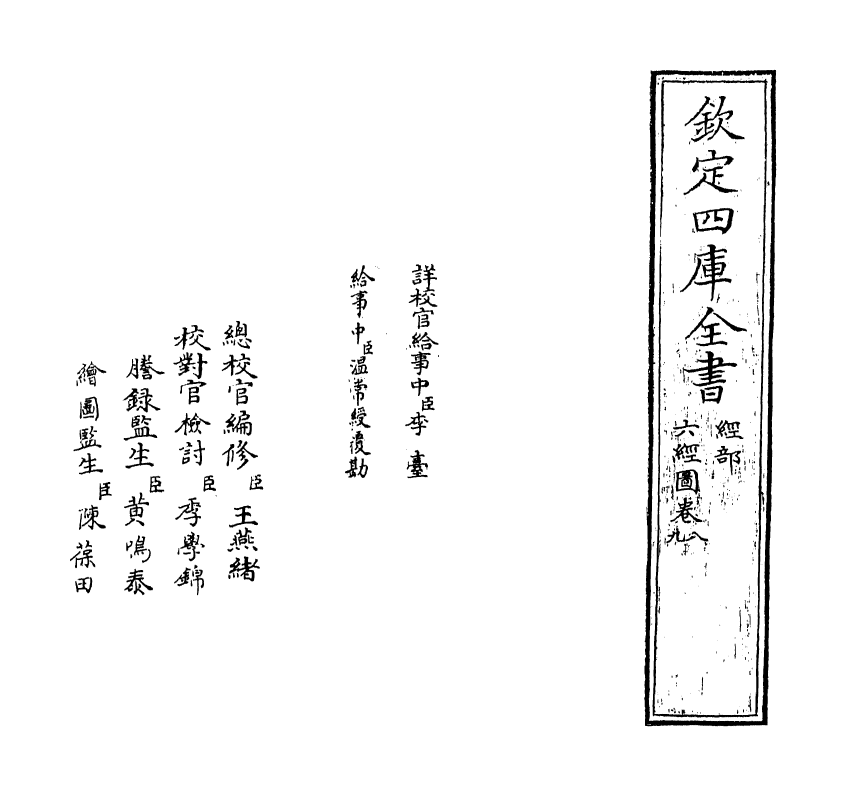 欽定四庫全書
經部
六經圖卷八九
詳校官給事中臣李臺
給事中臣温常綬覆勘
總校官編修臣王燕緒
校對官檢討臣李學錦
謄録監生臣黄鳴泰
繪圖監生臣陳葆田